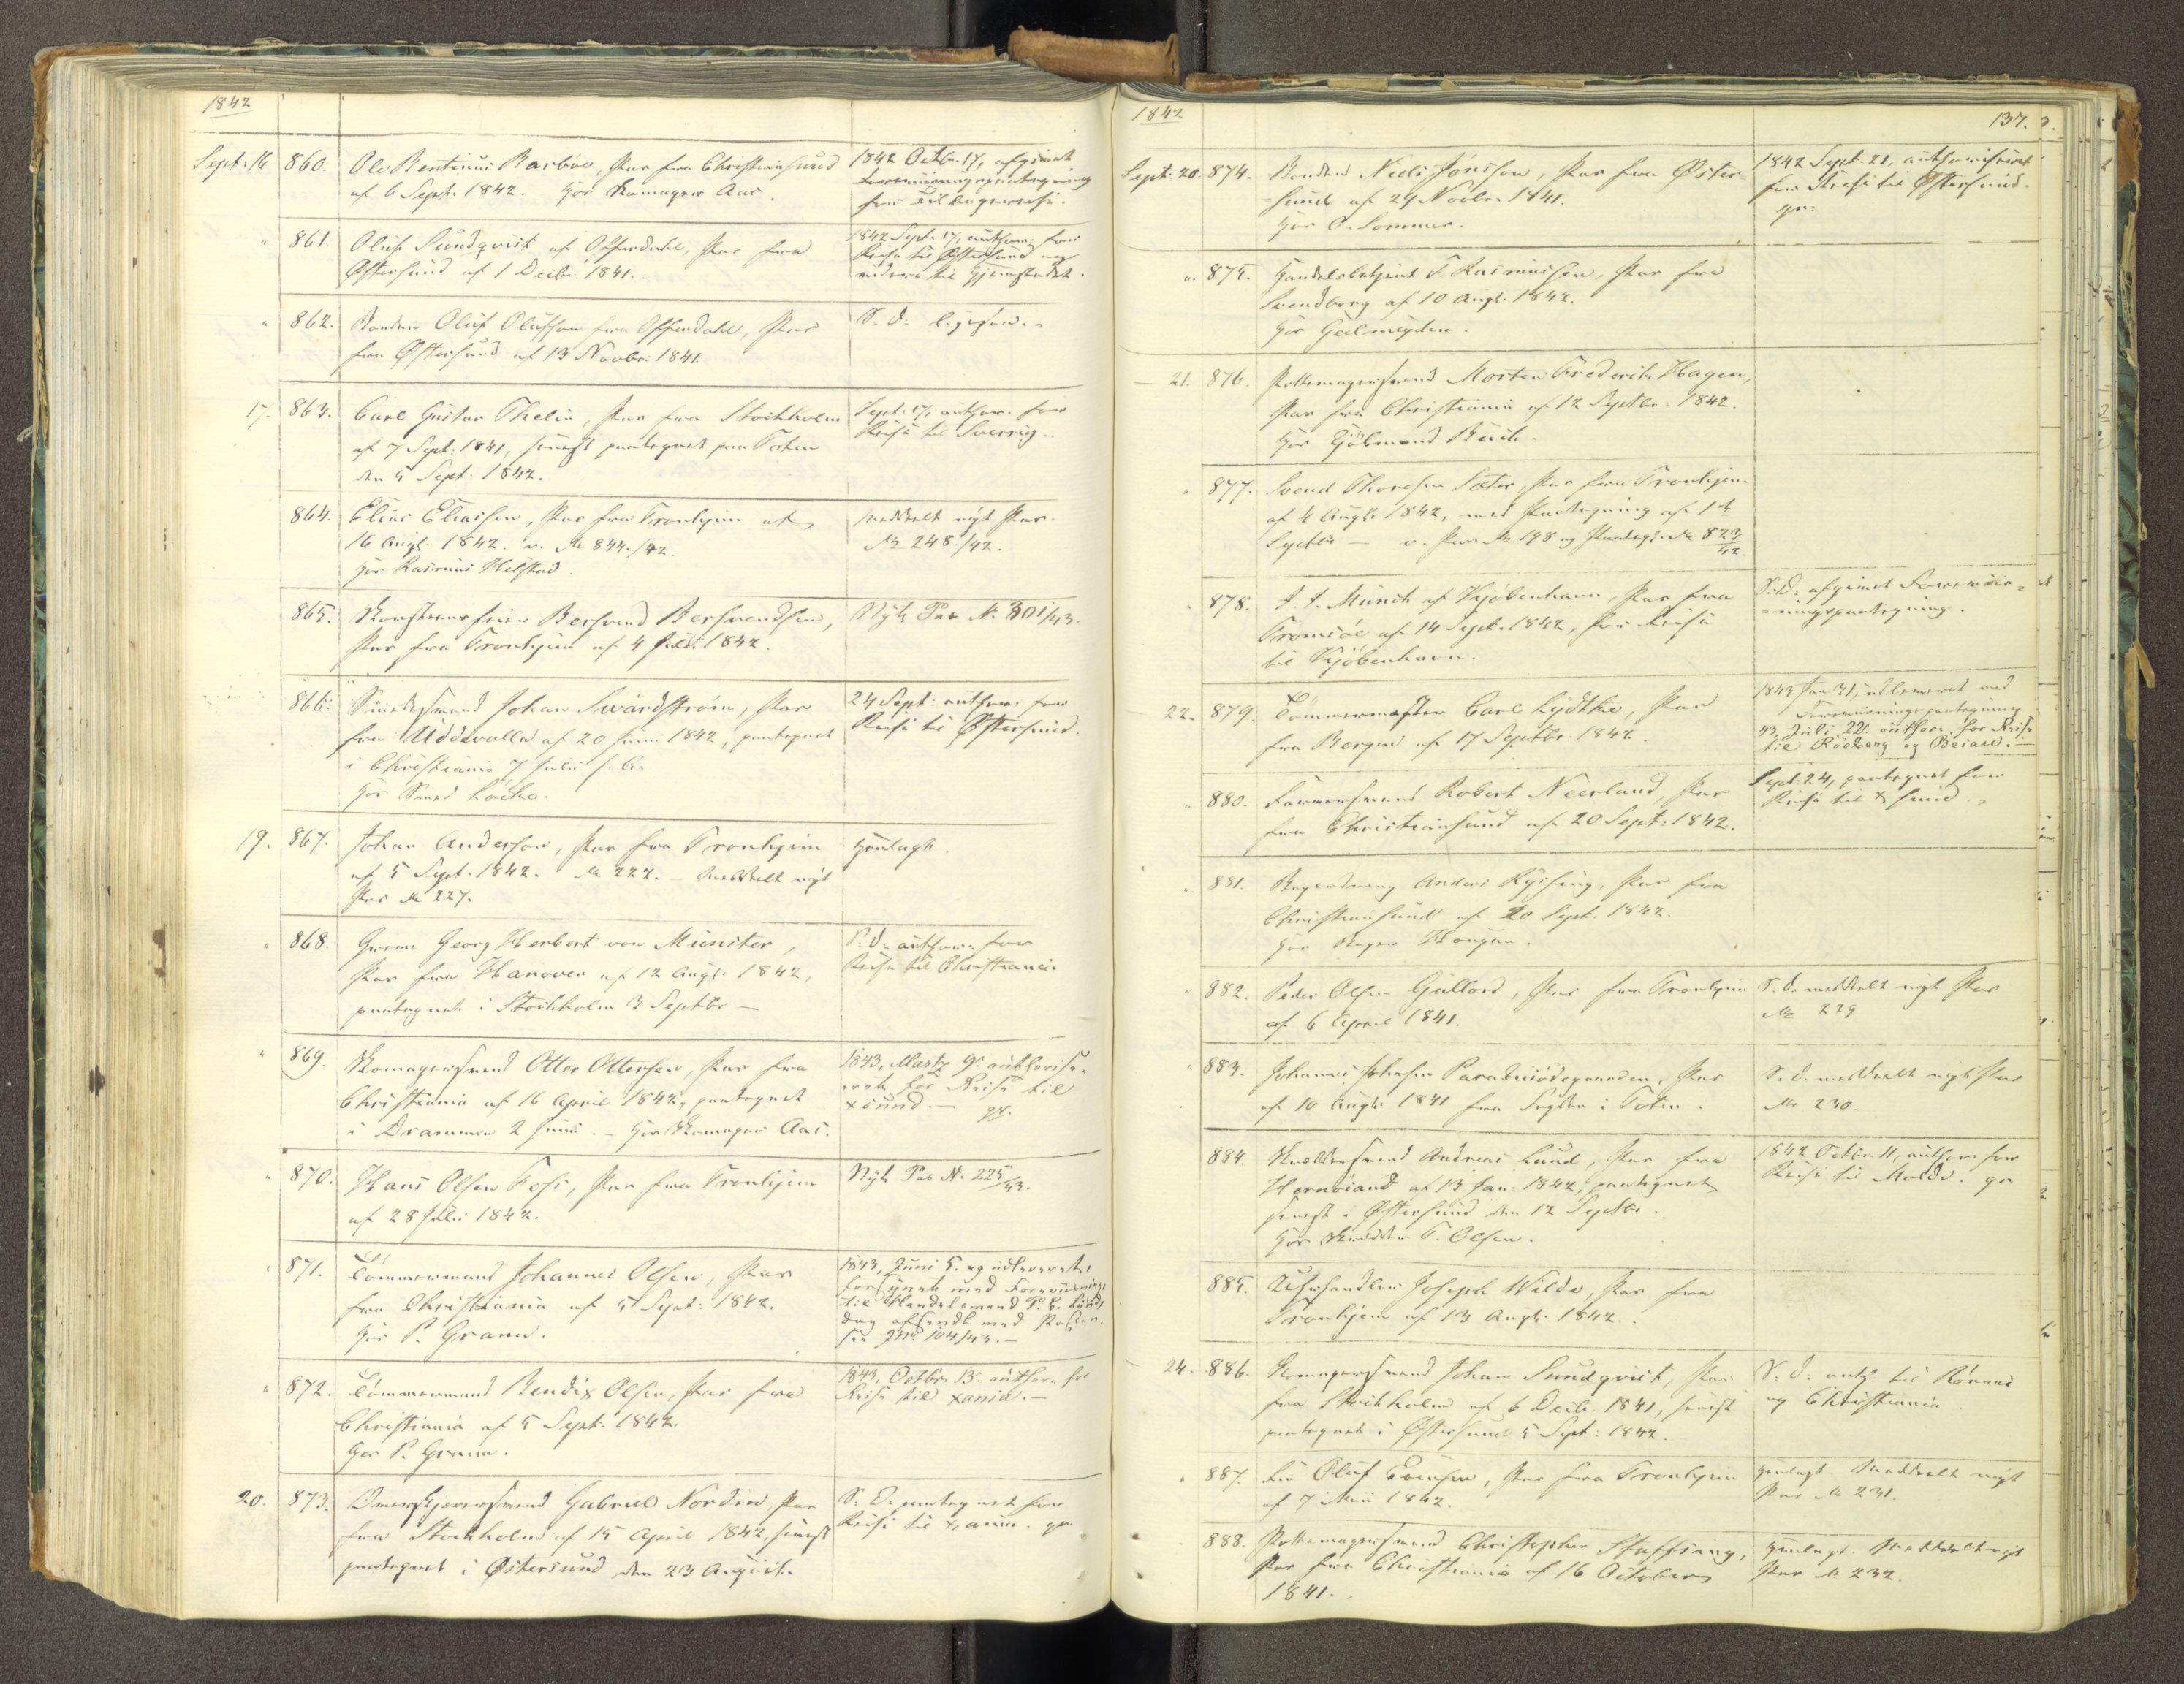 1842
Sept: 16 860. Ole Bentinus Barböe, Pas fra Christiansund
af 6 Sept. 1842. hos Skomager Aas.
1842 Octbr. 17, afgivet
Foreviisningspaategning
for Tilbagereise.
" 861. Oluf Sundqvist af Offerdahl, Pas fra
Østersund af 1 Decbr. 1841.
1842 Sept. 17, author. for
Reise til Østersund og
videre til Hjemstedet.
" 862. Bonden Oluf Olufson fra Offerdahl, Pas
fra Østersund af 13 Novbr. 1841.
S. D. ligesaa.
17. 863. Carl Gustav Thelin, Pas fra Stockholm
af 7 Sept. 1841, senest paategnet paa Toten
den 5 Sept. 1842.
Sept. 17, author. for
Reise til Sverrig.
864. Elias Eliassen, Pas fra Tronhjem af
16 Augt. 1842. v. No 844./42.
hos Rasmus Helstad.
meddelt nyt Pas.
No 248./42.
865. Skorsteensfeier Bersvend Bersvendsen,
Pas fra Tronhjem af 4 Juli 1842.
Nyt Pas N. 301/43.
866. Smedesvend Johan Swärdström, Pas
fra Uddevalla af 20 Juni 1842, paategnet
i Christiania 7 Juli
hos Smed Löcke.
24 Sept: author. for
Reise til Østersund.
19. 867. Johan Anderson, Pas fra Tronhjem
af 5 Sept. 1842. No 222. – Meddelt nyt
Pas No 227.
henlagt.
" 868. Greve Georg Herbert von Münster,
Pas fra Hanover af 12 Augt. 1842,
paategnet i Stockholm 3 Septbr –
S. D. author. for
Reise til Christiania.
" 869. Skomagersvend Otter Ottersen, Pas fra
Christiania af 16 April 1842, paategnet
i Drammen 2 Juni. – hos Skomager Aas.
1843, Marts 9. authorise-
ret for Reise til
xsund. –
" 870. Hans Olsen Foss, Pas fra Tronhjem
af 28 Juli 1842.
Nyt Pas N. 225/43.
" 871. Tömmermand Johannes Olsen, Pas
fra Christiania af 5 Sept: 1842.
hos P. Gramm.
1843, Juni 5. og udleveret,
forsynet med Foreviisning,
til Handelsmand P. C. Lund,
dag afsendt med Posten,
104/43. –
" 872. Tömmermand Bendix Olsen, Pas fra
Christiania af 5 Sept. 1842.
hos P. Gramm.
1843, Octbr. 13. author. for
Reise til xania. –
20. 873. Gabriel Nordin, Pas
fra Stockholm af 15 April 1842, senest
paategnet i Østersund den 23 August.
S. D. paategnet for
Reise til xania.
1842
137.
Sept: 20. 874. Bonden Niels Jönsson, Pas fra Øster
sund af 24 Novbr. 1841.
hos O. Sommer.
1842 Sept. 21, authoriseret
for Reise til Østersund.
" 875. Handelsbetjent F. Rasmussen, Pas fra
Svendborg af 10 Augt. 1842.
hos Geelmuyden.
– 21. 876. Pottemagersvend Morten Frederik Hagen,
Pas fra Christiania af 12 Septbr. 1842.
hos Kjöbmand Buck.
" 877. Svend Thoresen Sæter, Pas fra Tronhjem
af 4 Augt. 1842, med Paategning af 1ste
Septbr – v. Pas No 198 og Paategn. No 823/42.
" 878. Münch af Kjöbenhavn, Pas fra
Tromsöe af 14 Sept. 1842, for Reise
til Kjöbenhavn.
S. D. afgivet Foreviis-
ningspaategning.
22. 879. Tömmermester Carl Lydtke, Pas
fra Bergen af 17 Septbr. 1842.
1843 Jan 31, udleveret med
Foreviisningspaategning
43, Juli 22. author. for Reise
til
" 880. Farversvend Robert Neerland, Pas
fra Christiansund af 20 Sept. 1842.
Sept. 24, paategnet for
Reise til xsund.
" 881. Bagerdreng Anders Ryssing, Pas fra
Christiansund af 20 Sept. 1842.
hos Bager Hougan.
" 882. Peder Olsen Gullord, Pas fra Tronhjem
af 6 April 1841.
S. D. meddelt nyt Pas
No 229
" 883. Johannes Johnsen, Pas
af 10 Augt. 1841 fra Fogden i Toten.
S. D. meddelt nyt Pas
No 230.
884. Skræddersvend Andreas Lund, Pas fra
Hernösand af 13 Jan. 1842, paategnet
senest i Østersund den 12 Septbr.
hos Skrædder T. Olsen.
1842 Octbr. 11, author. for
Reise til Molde.
885. Uhrhandler Joseph Wilde, Pas fra
Tronhjem af 13 Augt. 1842.
24. 886. Skomagersvend Johan Sundqvist, Pas
fra Stockholm af 6 Decbr. 1841, senest
paategnet i Østersund 5 Sept: 1842.
S. D. auth. til Röraas
og Christiania.
" 887. Oluf Evensen, Pas fra Tronhjem
af 7 Mai 1842.
henlagt. Meddelt nyt
Pas No 231.
888. Pottemagersvend Christopher Staffsang,
Pas fra Christiania af 16 October
1841.
henlagt. Meddelt nyt
Pas No 232.